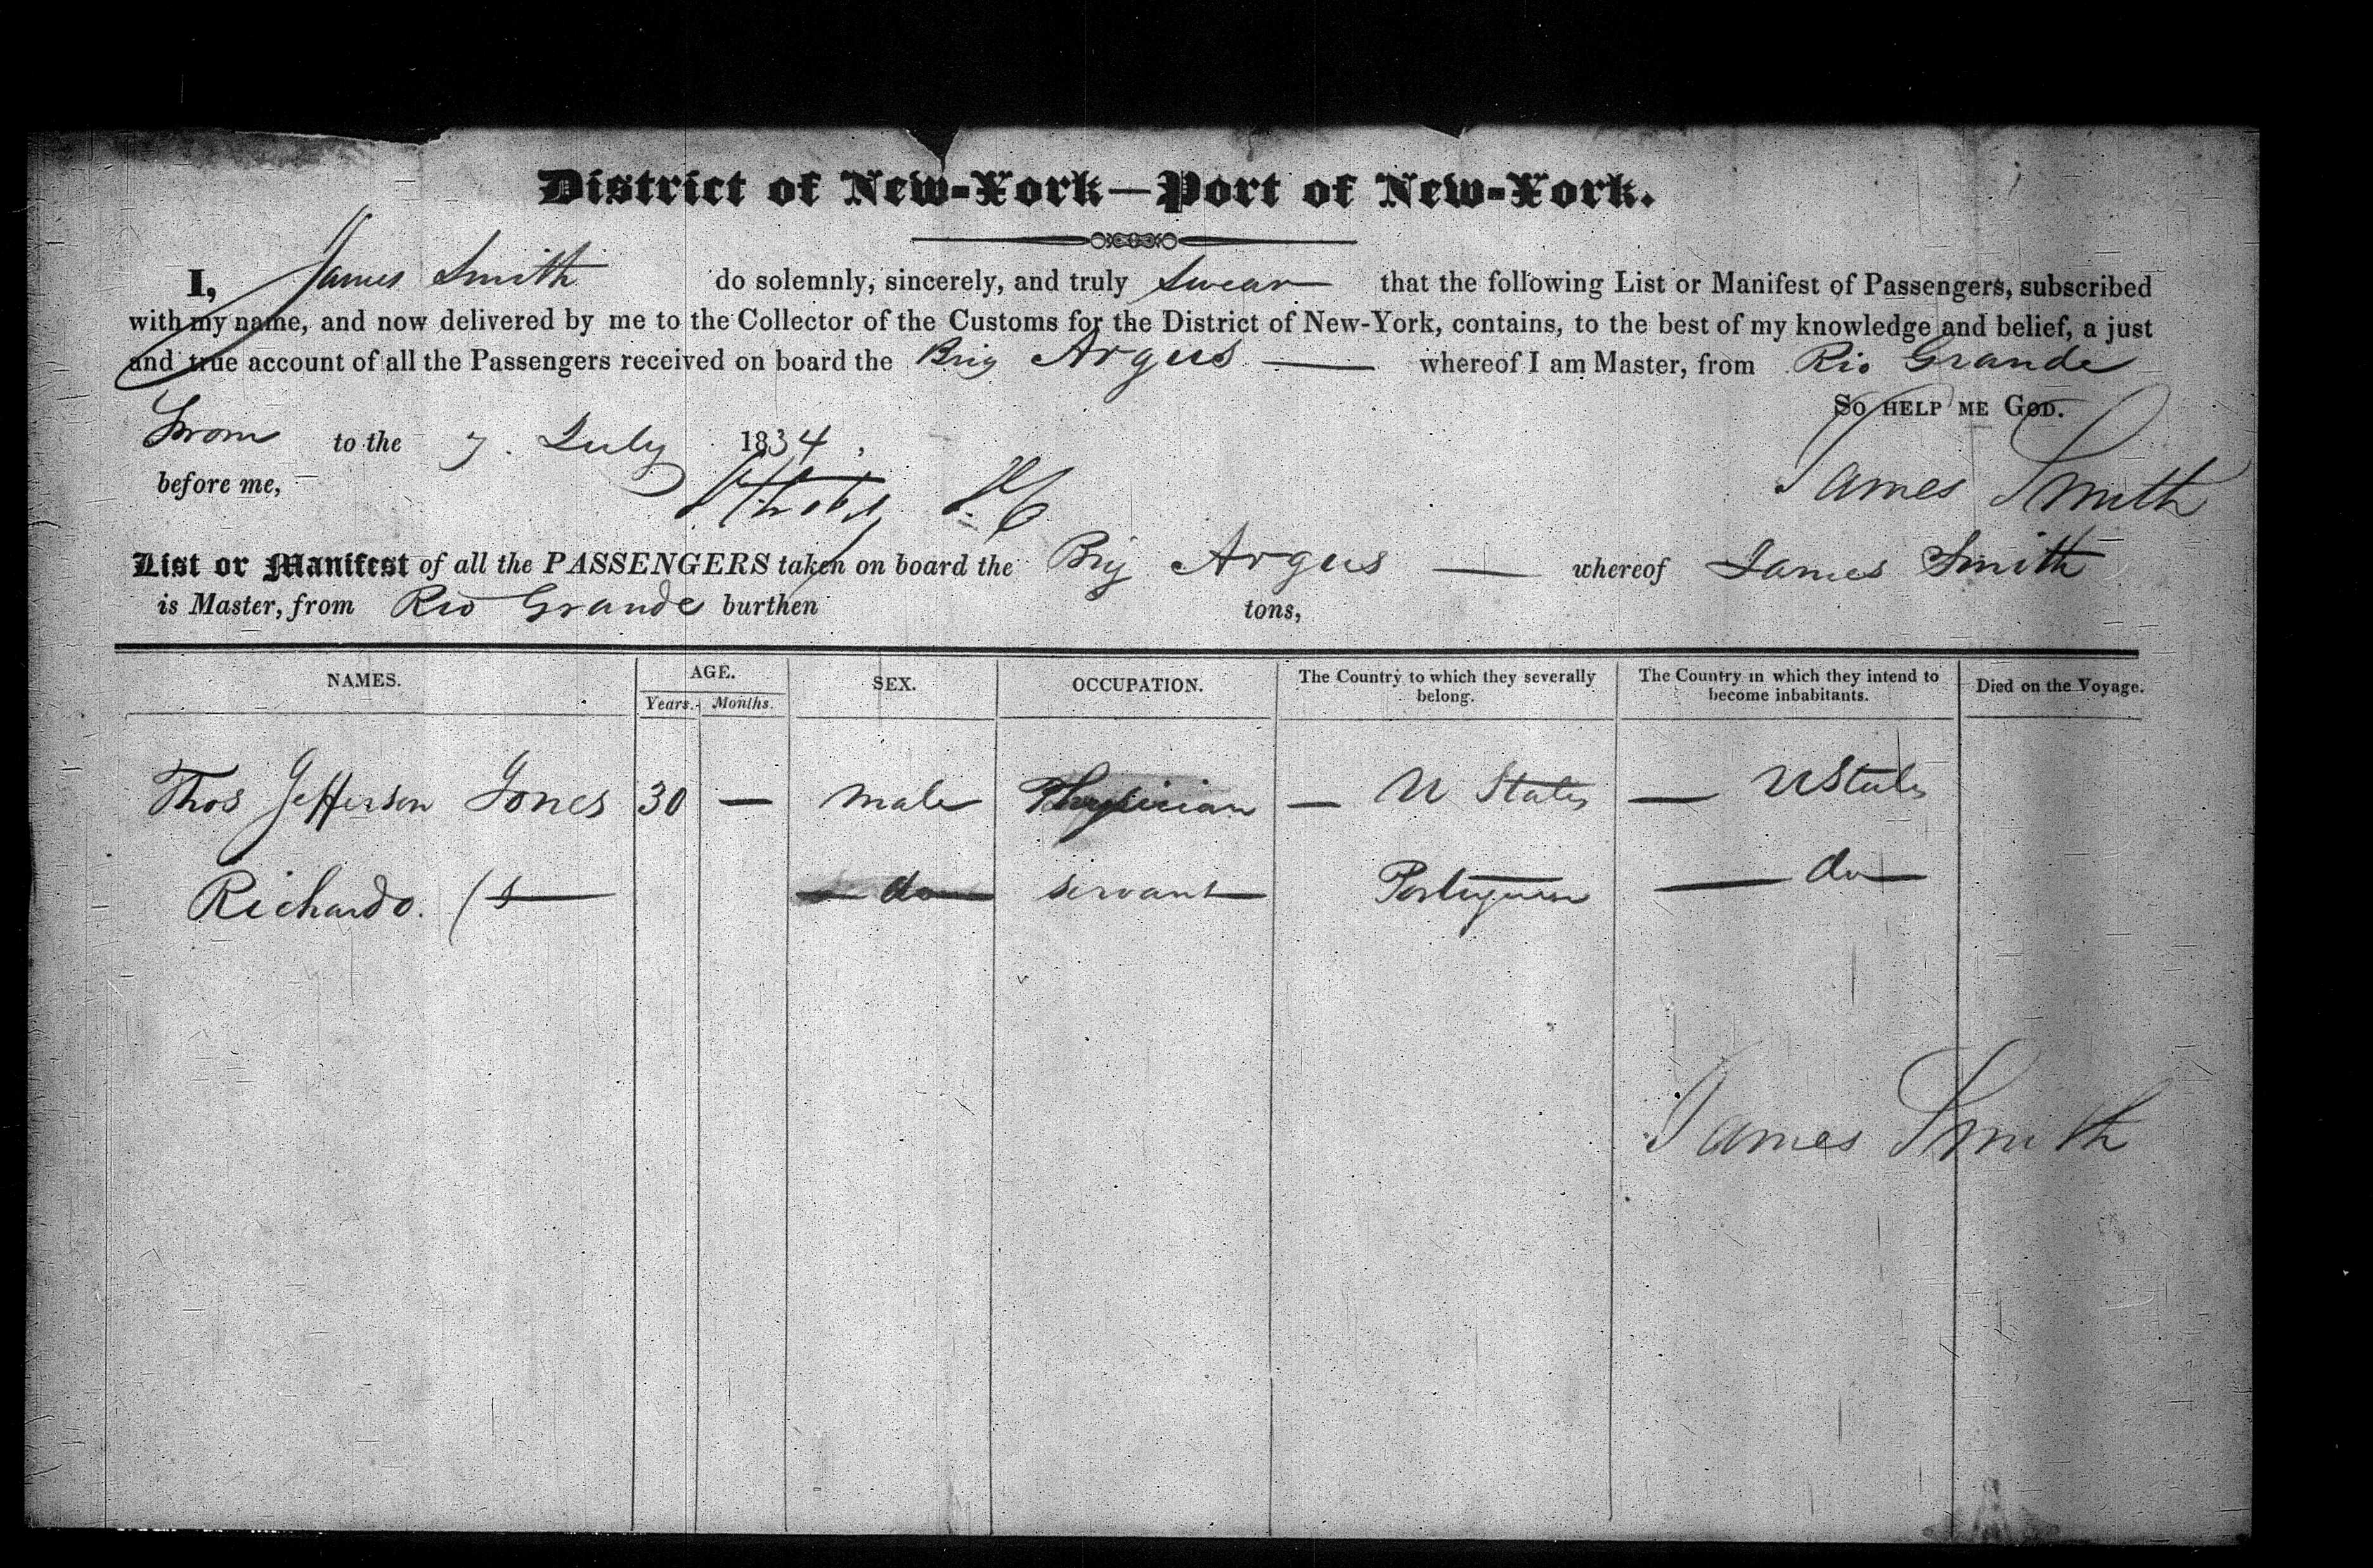 District of New-York—Port of New-York.
I, James Smith do solemnly, sincerely, and truly swear that the following List or Manifest of Passengers, subscribed
with my name, and now delivered by me to the Collector of the Customs for the District of New-York, contains, to the best of my knowledge and belief, a just
and true account of all the Passengers received on board the Brig Argus — whereof I am Master, from Rio Grande
So help me God.
Sworn to the 7. July 1834.
before me,
James Smith
List or Manifest of all the PASSENGERS taken on board the Brig Argus — whereof James Smith
is Master, from Rio Grande burthen tons,
NAMES. AGE. SEX. OCCUPATION. The Country to which they severally belong. The Country in which they intend to become inhabitants. Died on the Voyage.
Years. Months.
Thos Jefferson Jones 30 — male Physician — U States — U States
Richardo. — do — servant — Portuguese — do —
James Smith